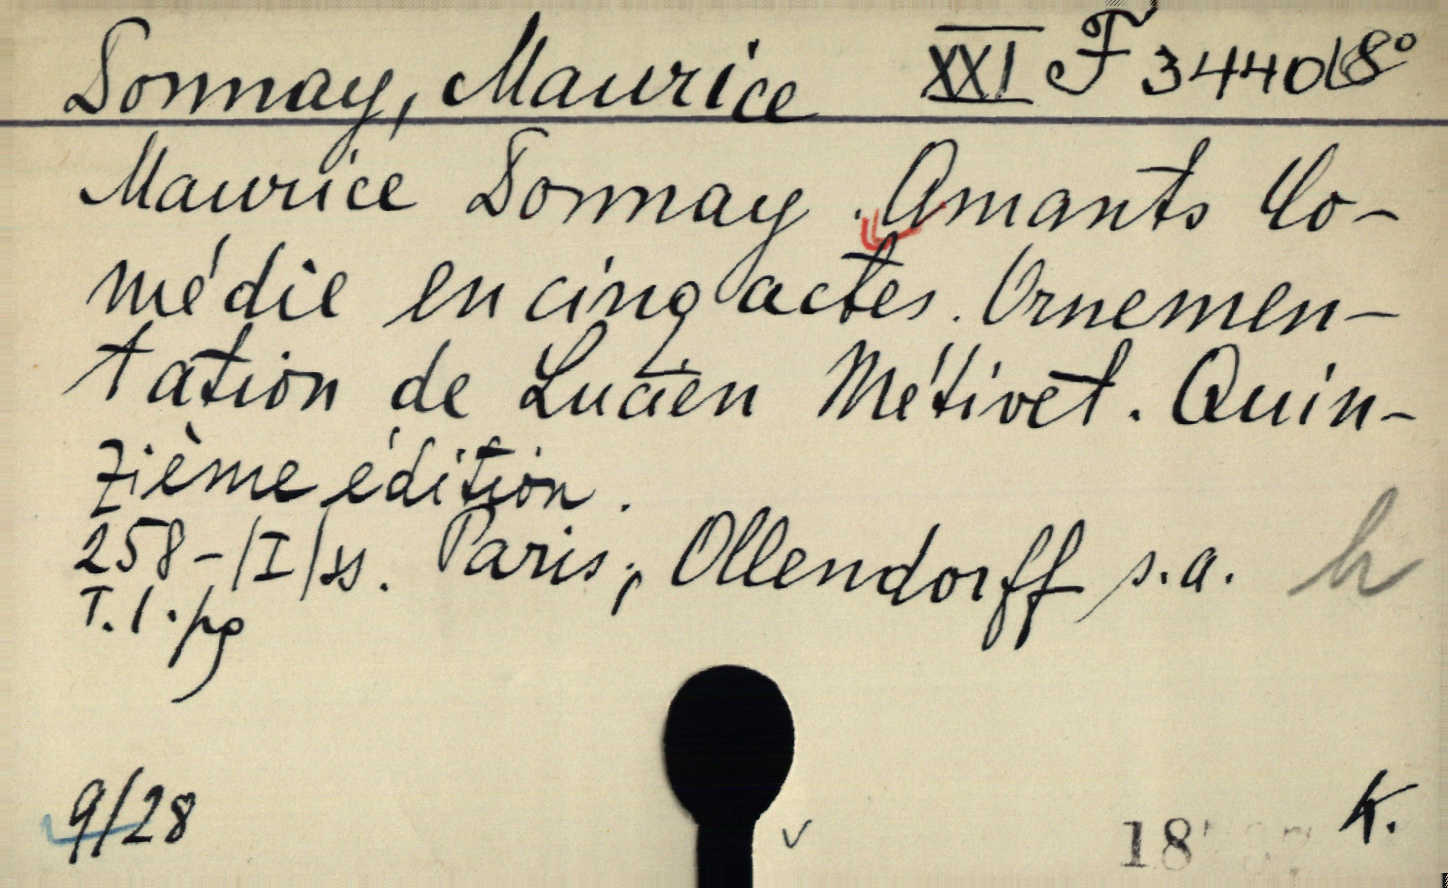 Donnay, Maurice XXI F 34401 8°
Maurice Donnay. Amants Co-
médie en cinq actes. Ornemen-
tation de Lucien Métivet. Quin-
zième édition.
258-/I/ss. Paris, Ollendorff s.a. h
T. l. pg
9/28
18 K.